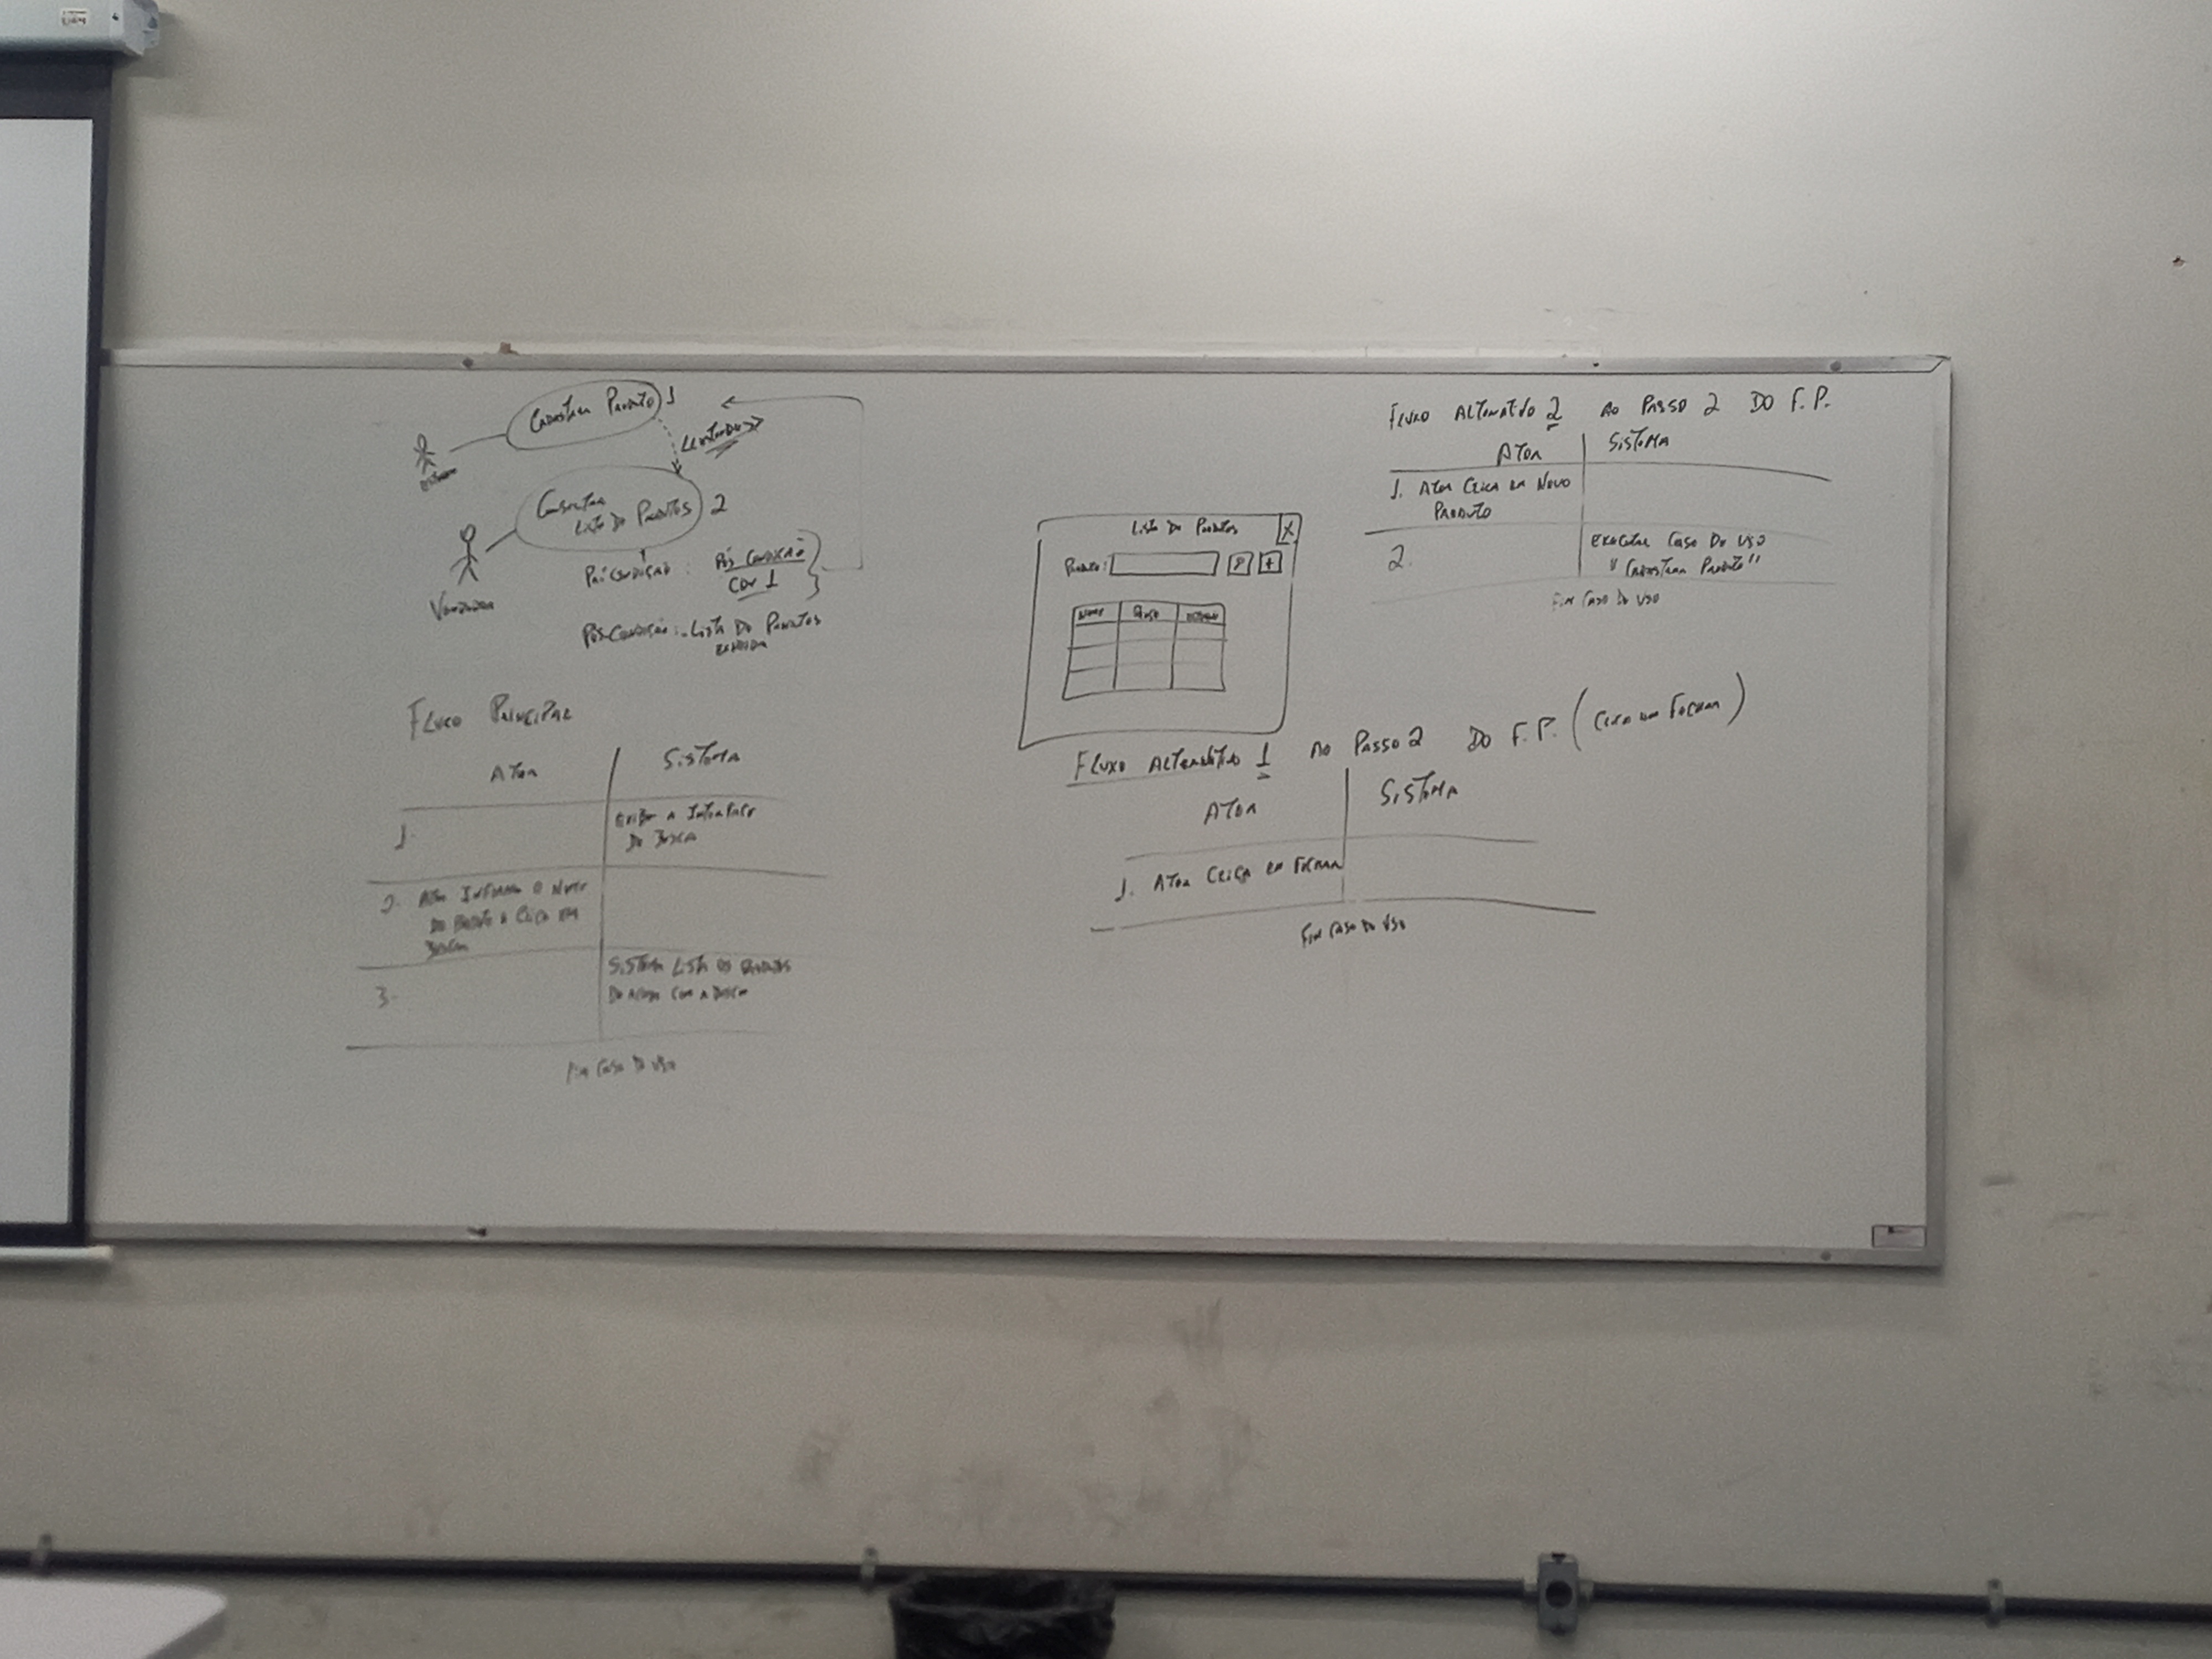 Cadastrar Produto 1
<<extends>>
Consultar
Lista De Produtos 2
Vendedor
Pré condição : Pós Condição
CDU 1
Pós-Condição : Lista De Produtos
exibida
Fluxo Principal
Ator Sistema
1. Exibe a Interface
De Busca
2. Ator Informa o Nome
Do Produto e Clica em
Buscar
3. Sistema Lista os Produtos
De Acordo Com a Busca
Fim Caso De Uso
Lista De Produtos X
Produto: P +
Nome Preço Estoque
Fluxo Alternativo 1 Ao Passo 2 Do F.P. (Clica em Fechar)
Ator Sistema
1. Ator Clica em Fechar
Fim Caso De Uso
Fluxo Alternativo 2 Ao Passo 2 Do F.P.
Ator Sistema
1. Ator Clica em Novo
Produto
2. Executar Caso De Uso
"Cadastrar Produto"
Fim Caso De Uso